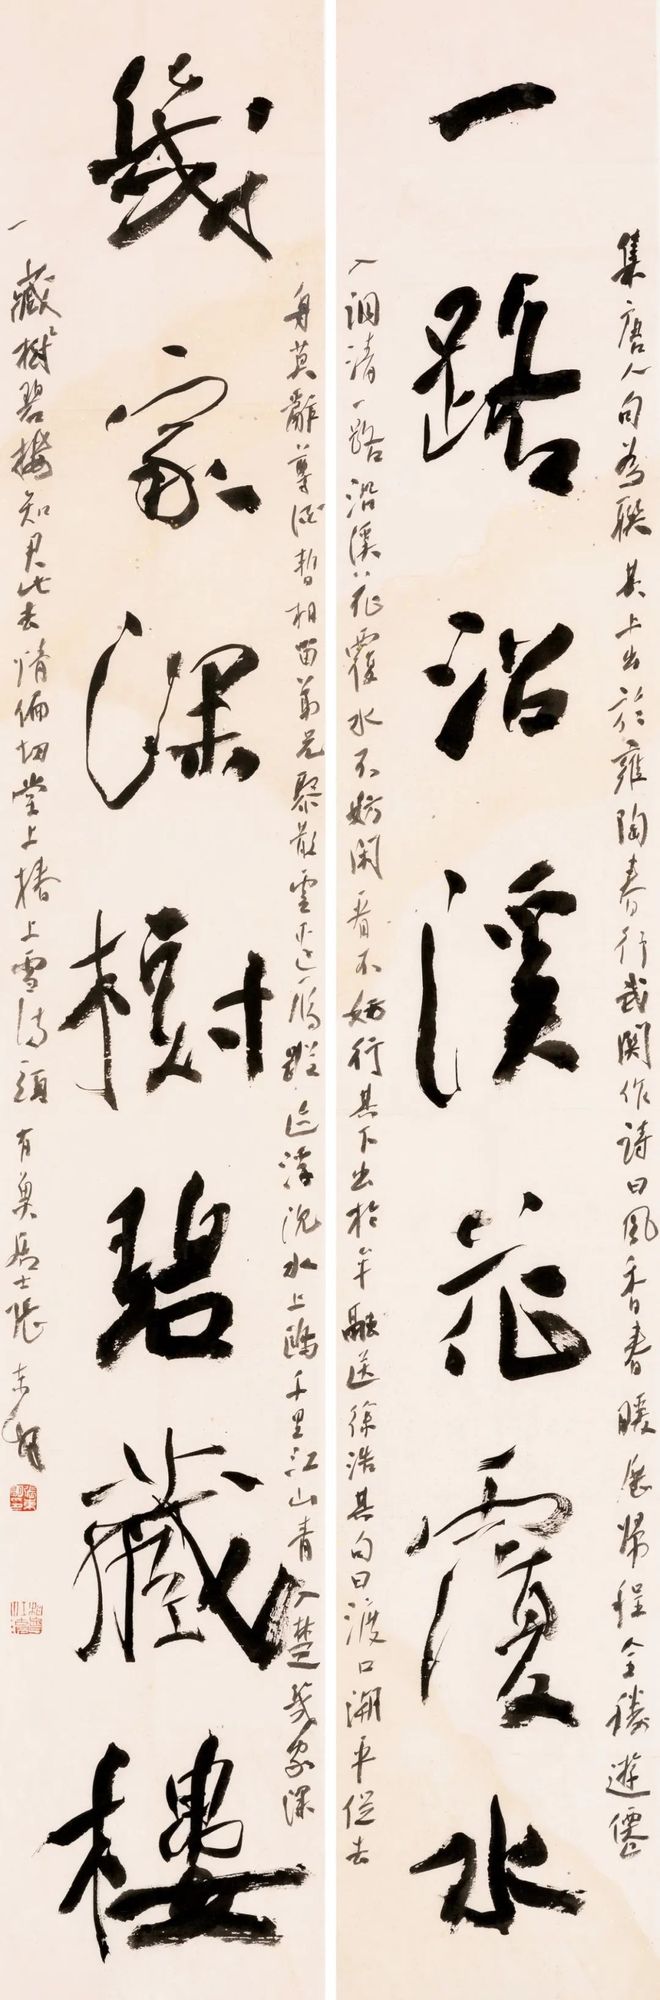 集唐人句為聯其上出於雍陶春行武關作詩曰風香春暖展歸程全勝遊僊
一路沿溪花覆水
入洞清一路沿溪花覆水不妨閑看不妨行其下出於牟融送徐浩其句曰渡口潮平促去
舟莫辭尊酒暫相留弟兄聚散雲邊雁蹤跡浮沉水上鷗千里江山青入楚幾家深
幾家深樹碧藏樓
藏樹碧樓知君此去情偏切堂上椿上雪滿頭